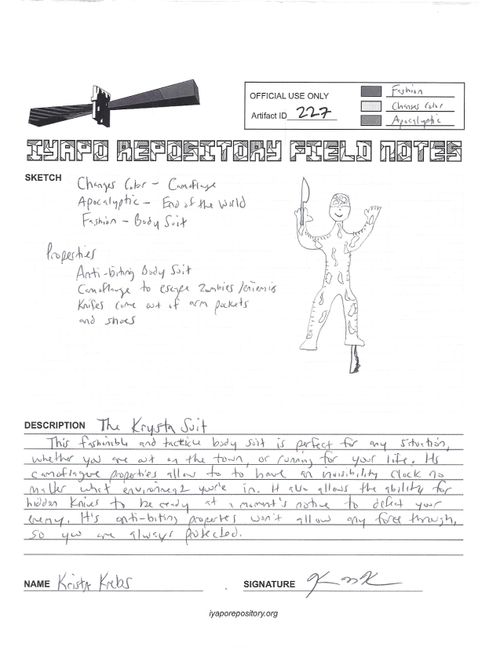 OFFICIAL USE ONLY
Artifact ID 227
Fashion
Changes Color
Apocalyptic
IYAPO REPOSITORY FIELD NOTES
SKETCH
Changes Color - Camoflauge
Apocalyptic - End of the World
Fashion - Body Suit
Properties
Anti-biting Body Suit
Camoflauge to escape zombies/enemies
Knifes come out of arm pockets
and shoes
DESCRIPTION The Krysta Suit
This fashionable and tactical body suit is perfect for any situation,
whether you are out on the town, or running for your life. Its
camoflague properties allow to to have an invisibility clock no
matter what environment you're in. It also allows the ability for
hidden knives to be ready at a moment's notice to defeat your
enemy. It's anti-biting properties won't allow any force through,
so you are always protected.
NAME Krista Krebs
SIGNATURE
iyaporepository.org